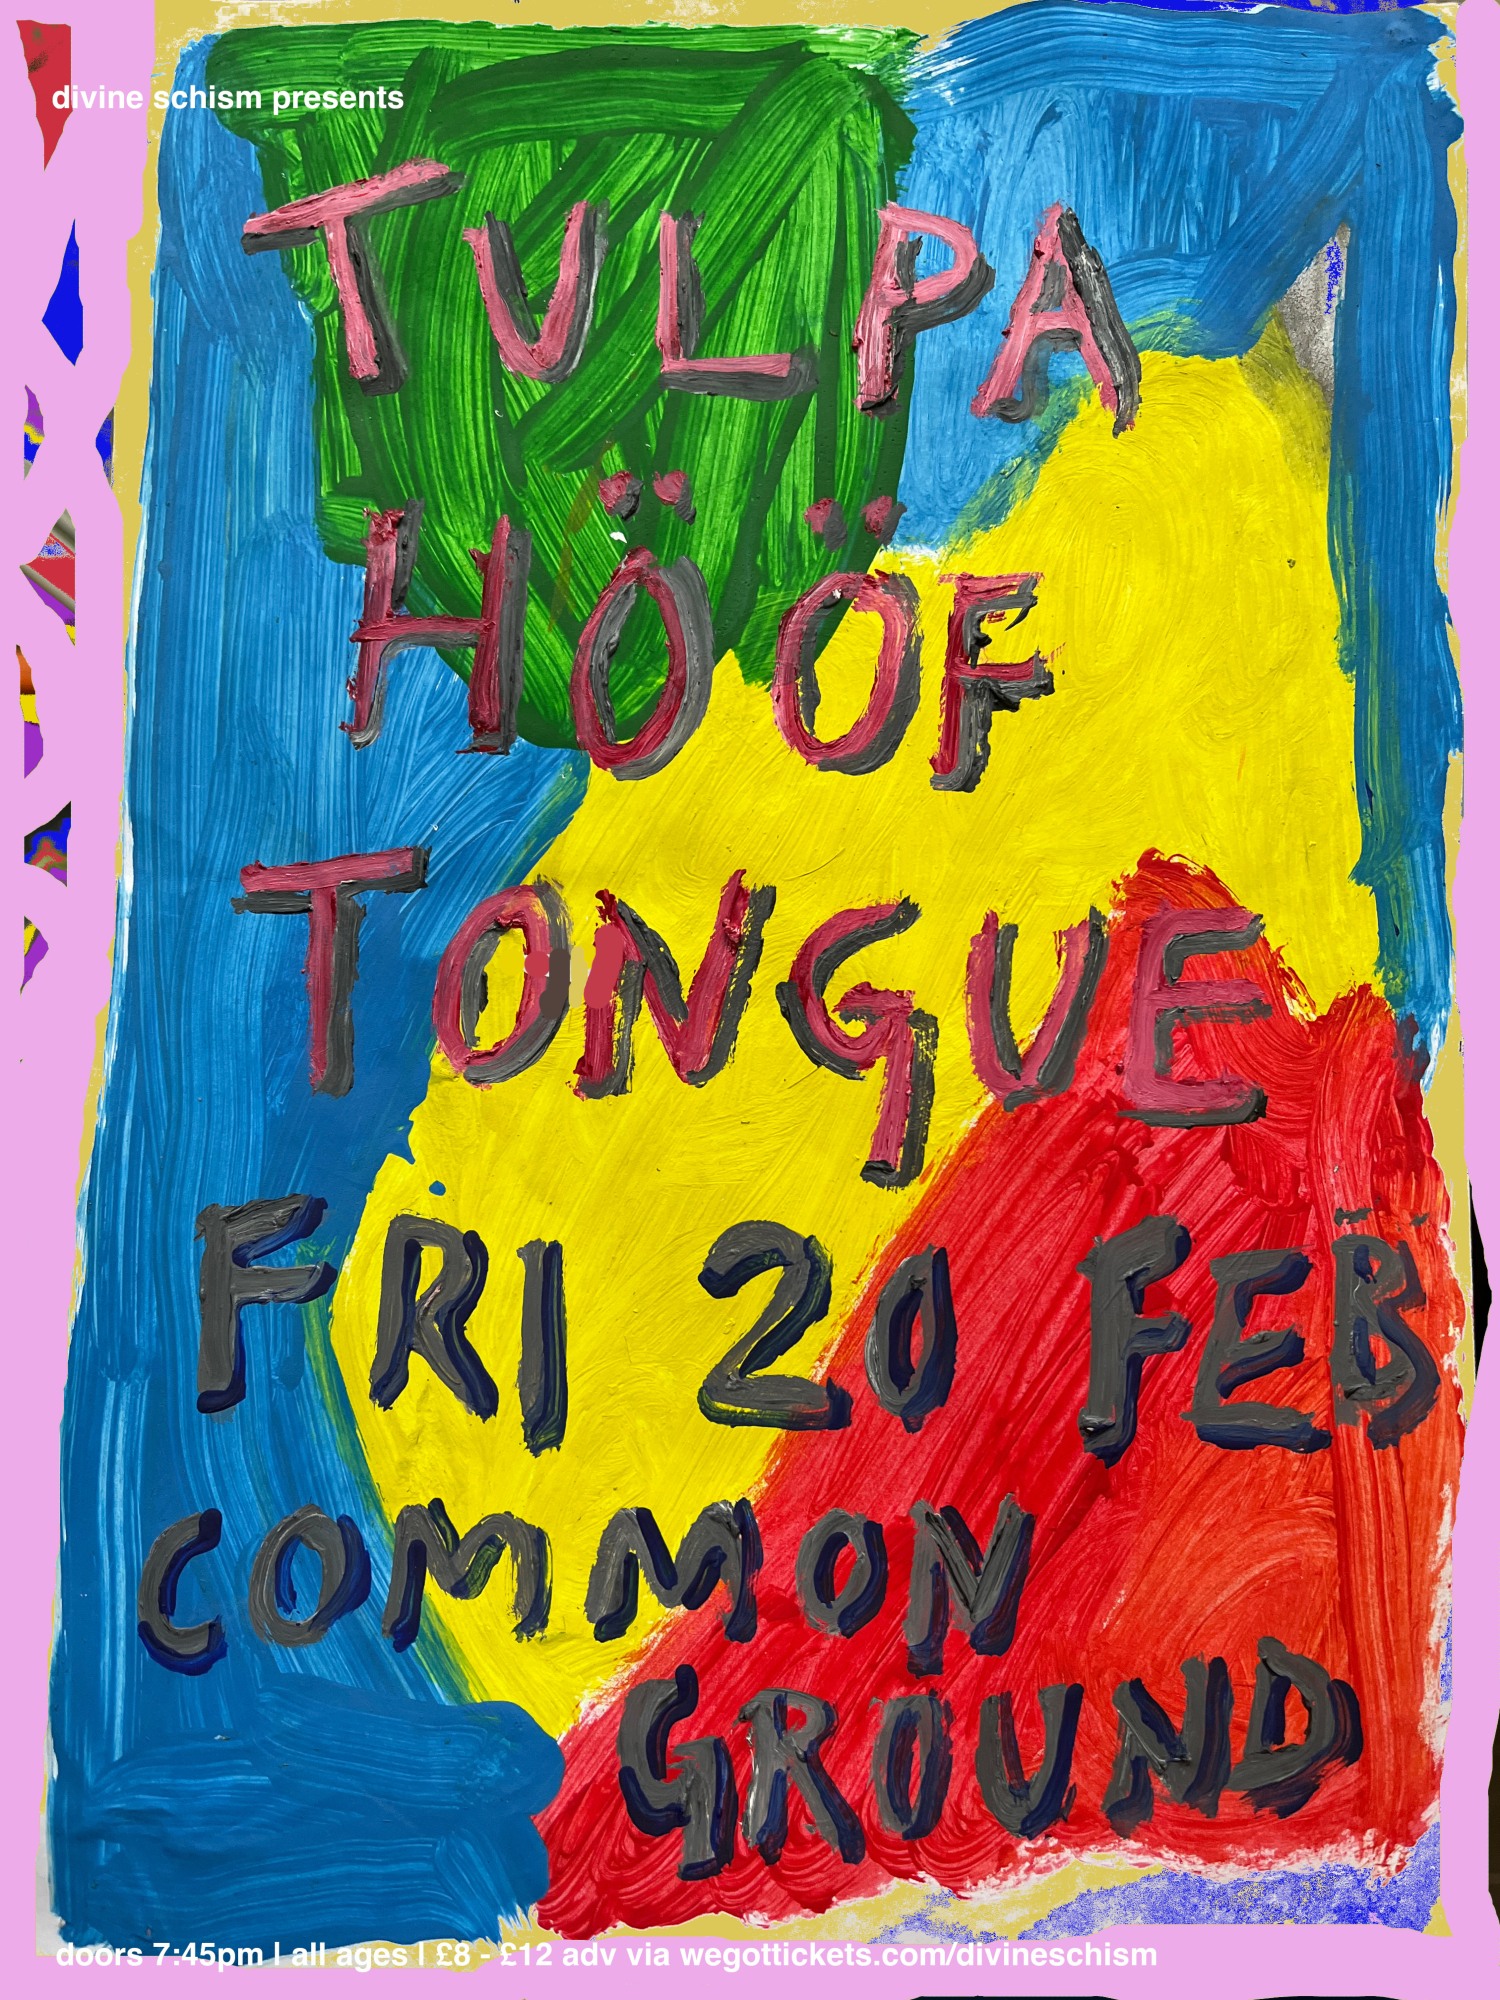 divine schism presents
TULPA
HÖÖF
TONGUE
FRI 20 FEB
COMMON
GROUND
doors 7:45pm | all ages | £8 - £12 adv via wegottickets.com/divineschism